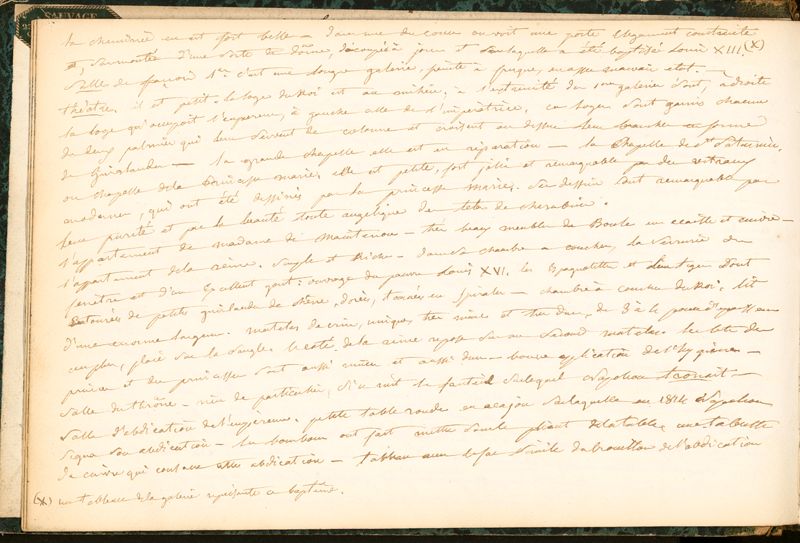 SAUVAGE
la cheminée en est fort belle – dans une des cours on voit une porte élégamment construite
et surmontée d'une sorte de dôme, découpé à jour et sur laquelle a été baptisé Louis XIII. (X)
Salle de françois 1er c'est une longue galerie, peinte à fresque, en assez mauvais état. –
théatre, il est petit. la loge du Roi est au milieu, à l'extrémité de la 1ère galerie sont, à droite
la loge qu'occupait l'empereur, à gauche celle de l'impératrice, ces loges sont garnies chacune
de deux palmiers qui leur servent de colonne et croisent au dessus leur branches en forme
de Guirlandes – la grande chapelle, elle est en réparation – la Chapelle de St Saturnin,
ou chapelle de la Princesse marie, elle est petite, fort jolie et remarquable par des vitraux
modernes, qui ont été dessinés par la princesse Marie. Ses dessins sont remarquables par
leur pureté et par la beauté toute angélique des têtes de chérubins.
l'appartement de madame de Maintenon – très beaux meubles de Boule en écaille et cuivre –
l'appartement de la reine. Simple et Riche – dans la chambre à coucher, la serrurerie des
fenêtres est d'un excellent goût: ouvrage du pauvre Louis XVI. les Baguettes et les tiges sont
entourées de petites guirlandes de chêne, dorées, tournées en spirales – chambre à coucher du Roi: lit
d'une énorme largeur. matelas de crin, unique, très mince et très dur, de 3 à 4 pouces
au plus, placé sur la sangle. le côté de la reine repose sur un second matelas. les lits des
princes et des princesses sont aussi minces et aussi durs – bonne application de l'hygiène –
Salle du thrône – rien de particulier, si ce n'est le fauteuil sur lequel Napoléon tronait –
Salle d'abdication de l'empereur. petite table ronde en acajou sur laquelle en 1814 Napoléon
signa son abdication – les bourbons ont fait mettre sous le pliant de la table, une tablette
de cuivre qui constate cette abdication – tableau avec le fac simile du brouillon de l'abdication
(X) un tableau de la galerie représente ce baptême.